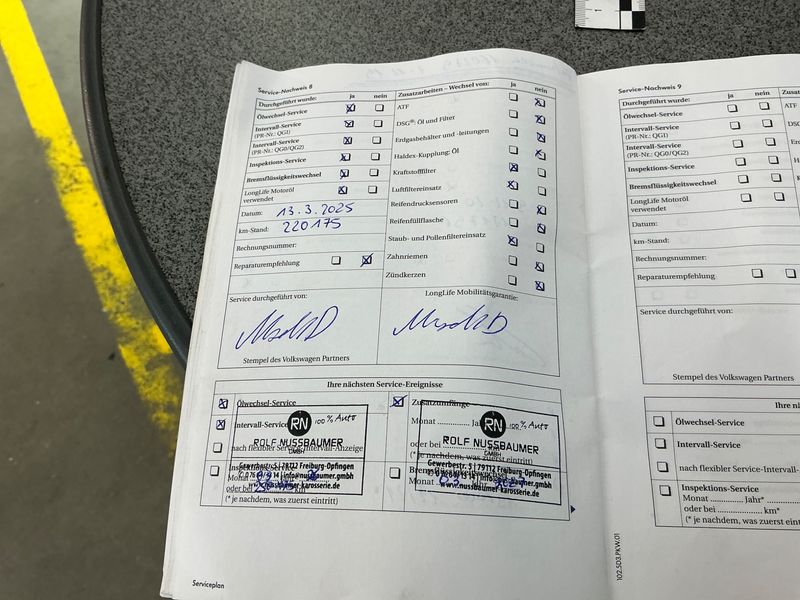 Service-Nachweis 8
Durchgeführt wurde: ja nein
Ölwechsel-Service
Intervall-Service
(PR-Nr.: QG1)
Intervall-Service
(PR-Nr.: QG0/QG2)
Inspektions-Service
Bremsflüssigkeitswechsel
LongLife Motoröl
verwendet
Datum: 13.3.2025
km-Stand: 220175
Rechnungsnummer:
Reparaturempfehlung
Zusatzarbeiten – Wechsel von: ja nein
ATF
DSG®: Öl und Filter
Erdgasbehälter und -leitungen
Haldex-Kupplung: Öl
Kraftstofffilter
Luftfiltereinsatz
Reifendrucksensoren
Reifenfüllflasche
Staub- und Pollenfiltereinsatz
Zahnriemen
Zündkerzen
Service durchgeführt von:
LongLife Mobilitätsgarantie:
Stempel des Volkswagen Partners
Ihre nächsten Service-Ereignisse
Ölwechsel-Service
Intervall-Service
nach flexibler Service-Intervall-Anzeige
Inspektions-Service
Monat
oder bei km*
(* je nachdem, was zuerst eintritt)
RN 100% Auto
ROLF NUSSBAUMER
GMBH
Gewerbestr. 5 | 79112 Freiburg-Opfingen
www.nussbaumer-karosserie.de
Zusatzumfänge
Monat
oder bei
(* je nachdem, was zuerst eintritt)
Monat
RN 100% Auto
ROLF NUSSBAUMER
GMBH
Gewerbestr. 5 | 79112 Freiburg-Opfingen
www.nussbaumer-karosserie.de
Serviceplan
Service-Nachweis 9
Durchgeführt wurde: ja nein
Ölwechsel-Service
Intervall-Service
(PR-Nr.: QG1)
Intervall-Service
(PR-Nr.: QG0/QG2)
Inspektions-Service
Bremsflüssigkeitswechsel
LongLife Motoröl
verwendet
Datum:
km-Stand:
Rechnungsnummer:
Reparaturempfehlung
ATF
Service durchgeführt von:
Stempel des Volkswagen Partners
Ölwechsel-Service
Intervall-Service
nach flexibler Service-Intervall-
Inspektions-Service
Monat ............ Jahr*
oder bei ............ km*
(* je nachdem, was zuerst
102.5D3.PKW.01